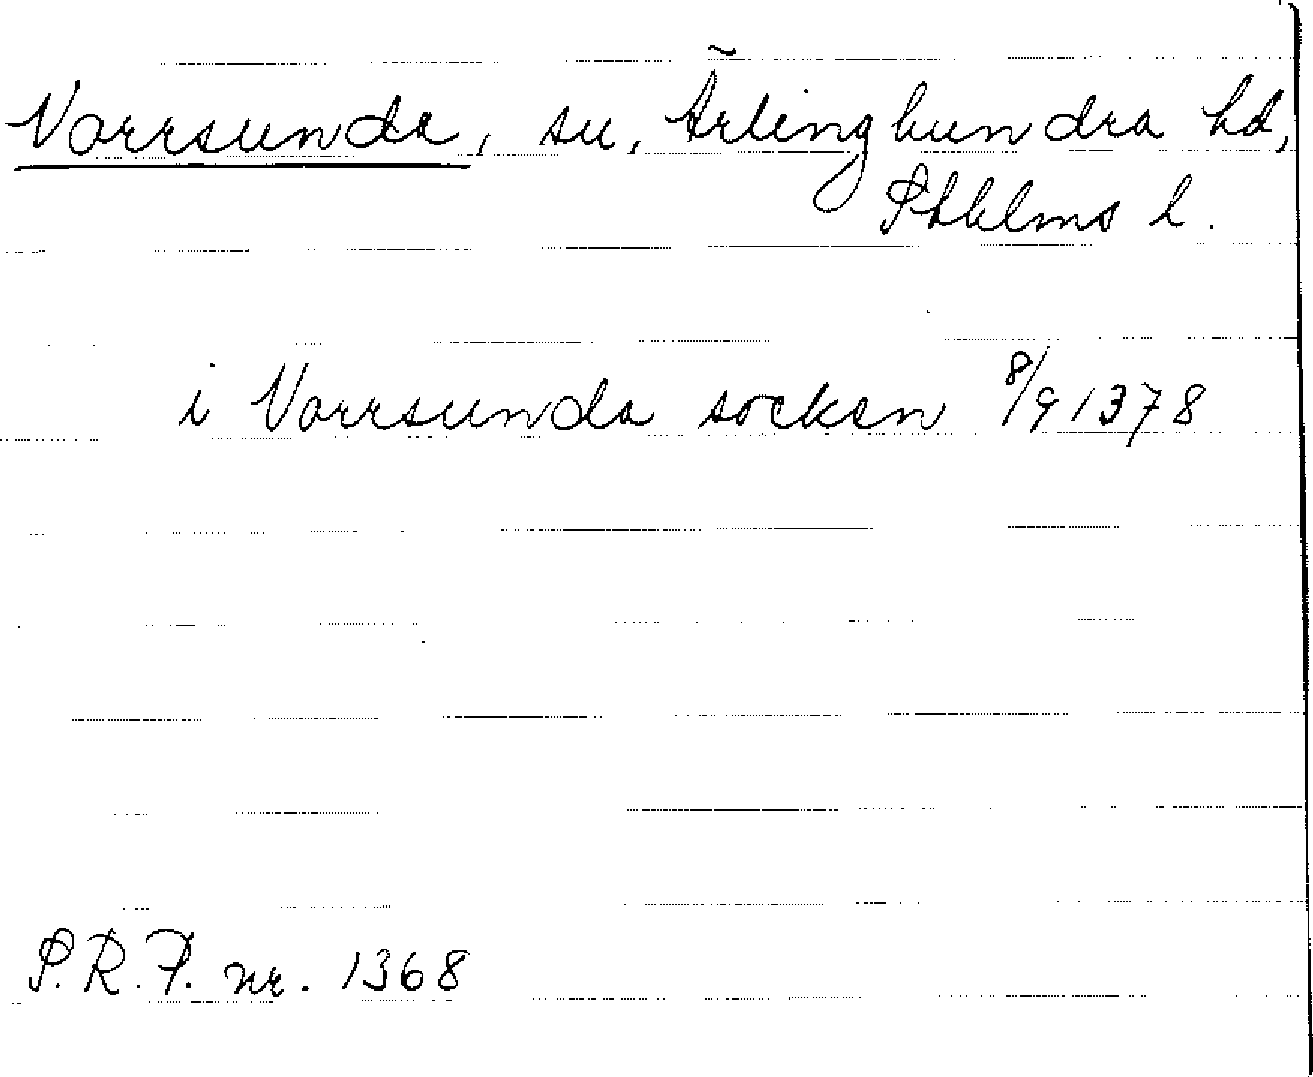 Vorrsunda, sn, Ärlinghundra hd,
Sthlms l.
i Vorrsunda socken 8/9 1378
S.R.P. nr. 1368